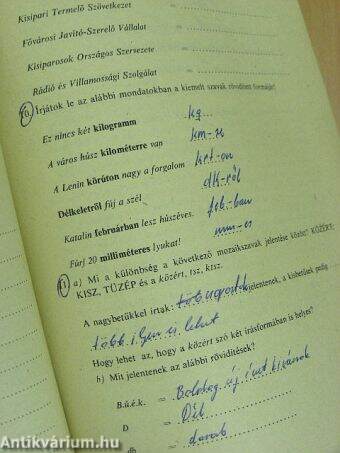 Kisipari Termelő Szövetkezet
Fővárosi Javító-Szerelő Vállalat
Kisiparosok Országos Szervezete
Rádió és Villamossági Szolgálat
10. Írjátok le az alábbi mondatokban a kiemelt szavak rövidített formáját!
Ez nincs két kilogramm kg
A város húsz kilométerre van km-re
A Lenin körúton nagy a forgalom krt-on
Délkeletről fúj a szél dk-ről
Katalin februárban lesz húszéves. feb.-ban
Fúrj 20 milliméteres lyukat! mm-es
11. a) Mi a különbség a következő mozaikszavak jelentése között? KÖZÉRT,
KISZ, TÜZÉP és a közért, tsz, ksz.
A nagybetűkkel írtak jelentenek, a kisbetűsek pedig
több ilyen is lehet
Hogy lehet az, hogy a közért szó két írásformában is helyes?
b) Mit jelentenek az alábbi rövidítések?
B.ú.é.k. = Boldog új évet kívánok
D = Dél
db = darab
Antikvárium.hu